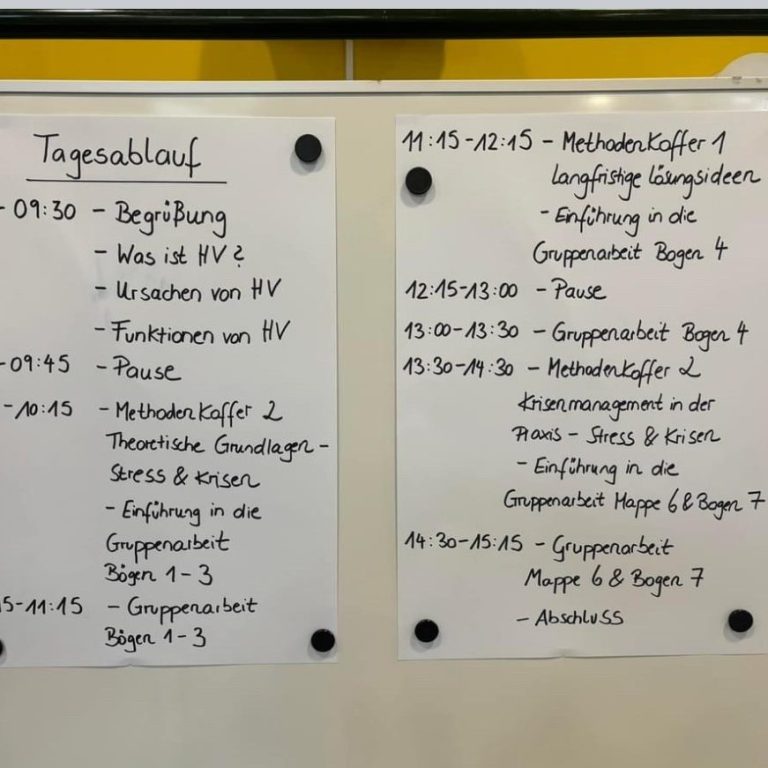 Tagesablauf
- 09:30 - Begrüßung
- Was ist HV?
- Ursachen von HV
- Funktionen von HV
-09:45 - Pause
-10:15 - Methodenkoffer 2
Theoretische Grundlagen -
Stress & Krisen
- Einführung in die
Gruppenarbeit
Bögen 1-3
5-11:15 - Gruppenarbeit
Bögen 1-3
11:15-12:15 - Methodenkoffer 1
langfristige Lösungsideen
- Einführung in die
Gruppenarbeit Bogen 4
12:15-13:00 - Pause
13:00-13:30 - Gruppenarbeit Bogen 4
13:30-14:30 - Methodenkoffer 2
Krisenmanagement in der
Praxis - Stress & Krisen
- Einführung in die
Gruppenarbeit Mappe 6 & Bogen 7
14:30-15:15 - Gruppenarbeit
Mappe 6 & Bogen 7
- Abschluss